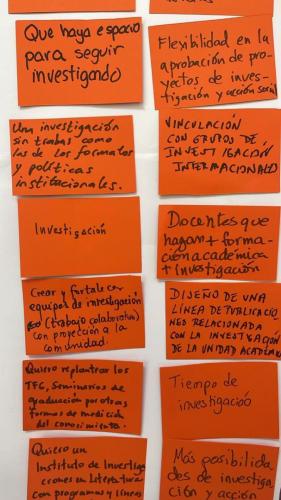 Que haya espacio
para seguir
investigando
Flexibilidad en la
aprobación de pro-
yectos de inves-
tigación y acción social
Una investigación
sin trabas como
las de los formatos
y políticas
institucionales.
VINCULACIÓN
CON GRUPOS DE
INVESTIGACIÓN
INTERNACIONALES
Investigación
Docentes que
hagan + forma-
ción académica
+ investigación
Crear y fortalecer
equipos de investigación
(trabajo colaborativo)
con proyección a la
comunidad.
DISEÑO DE UNA
LÍNEA DE PUBLICACIO
NES RELACIONADA
CON LA INVESTIGACIÓN
DE LA UNIDAD ACADÉMICA
Quiero replantear los
TFG, Seminarios de
graduación por otras
formas de medición
del conocimiento.
Tiempo de
investigación
Quiero un
Instituto de Investiga
ciones en Literatura
con programas y líneas
Más posibilida
des de investiga
ción y acción